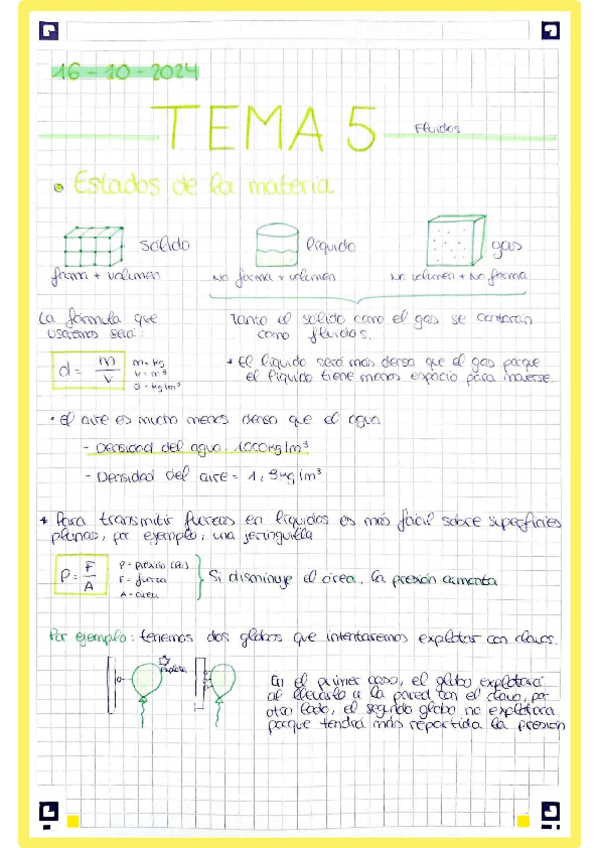 16-10-2024
TEMA 5 Fluidos
Estados de la materia
sólido líquido gas
forma + volumen No forma + volumen No volumen + No forma
La fórmula que
usaremos será:
Tanto el sólido como el gas se contarán
como fluidos.
d = m/V
m = kg
V = m³
d = kg/m³
* El líquido será más denso que el gas porque
el líquido tiene menos espacio para moverse.
• El aire es mucho menos denso que el agua
- Densidad del agua: 1000kg/m³
- Densidad del aire = 1,3kg/m³
* Para transmitir fuerzas en líquidos es más fácil sobre superficies
planas, por ejemplo, una jeringuilla
P = F/A
P = presión (Pa)
F = fuerza
A = área
Si disminuye el área, la presión aumenta
Por ejemplo: tenemos dos globos que intentaremos explotar con clavos.
explota
En el primer caso, el globo explotará
al llevarlo a la pared con el clavo, por
otro lado, el segundo globo no explotará
porque tendrá más repartida la presión